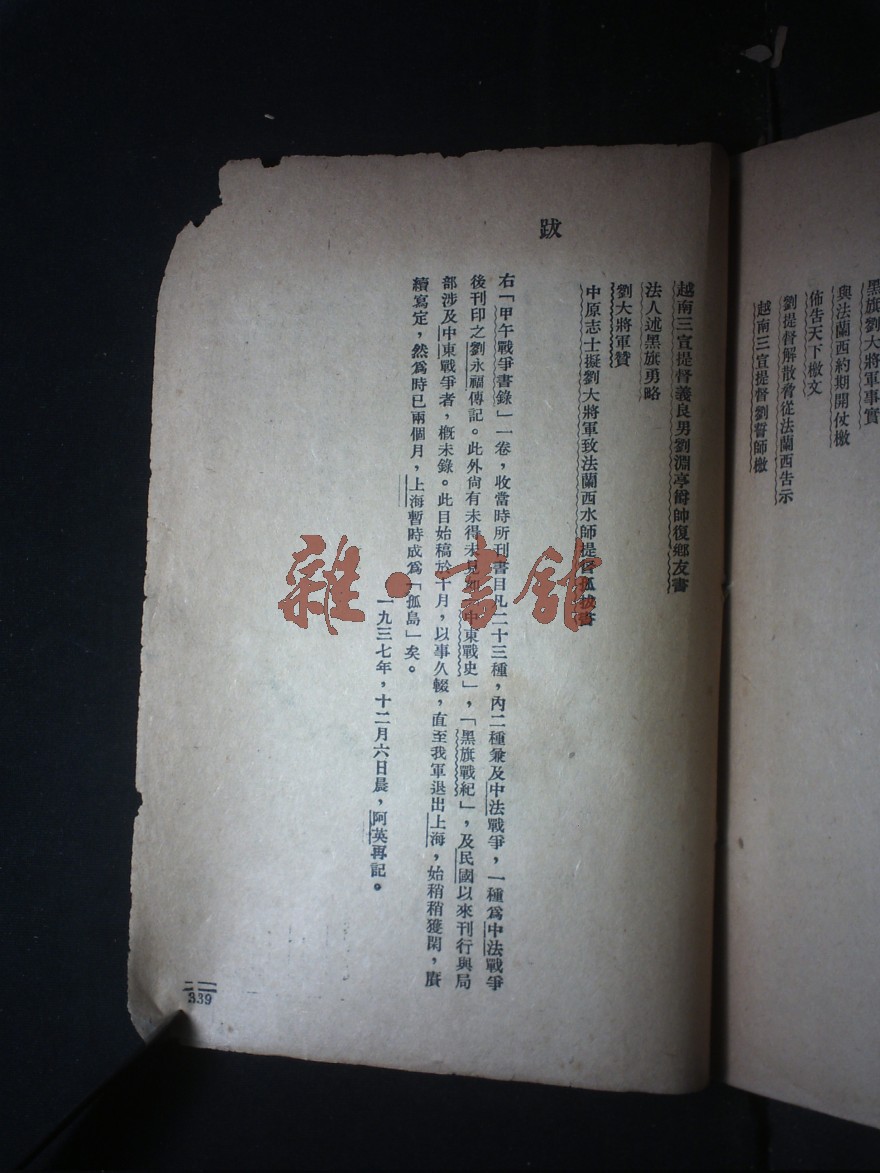 黑旗劉大將軍事實
與法蘭西約期開仗檄
佈告天下檄文
劉提督解散脅從法蘭西告示
越南三宣提督劉誓師檄
越南三宣提督義良男劉淵亭爵帥復鄉友書
法人述黑旗勇略
劉大將軍贊
中原志士擬劉大將軍致法蘭西水師提督孤拔書
跋
右「甲午戰爭書錄」一卷，收當時所刊書目凡二十三種，內二種兼及中法戰爭，一種爲中法戰爭
後刊印之劉永福傳記。此外尙有未得未見如「中東戰史」，「黑旗戰紀」，及民國以來刊行與局
部涉及中東戰爭者，槪未錄。此目始稿於十月，以事久輟，直至我軍退出上海，始稍稍獲閑，賡
續寫定，然爲時已兩個月，上海暫時成爲「孤島」矣。
一九三七年，十二月六日晨，阿英再記。
339
雜·書館